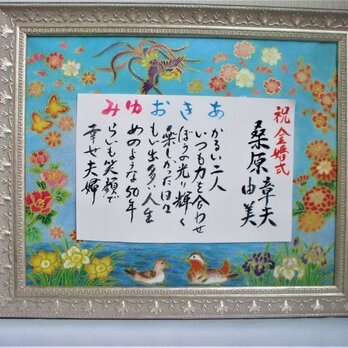 祝金婚式
桑原 章夫
由美
あきおゆみ
かるい二人
いつも力を合わせ
ぼうの光り輝く
楽しかった日々
もい出多い人生
めのような50年
らいも笑顔で
幸せ夫婦